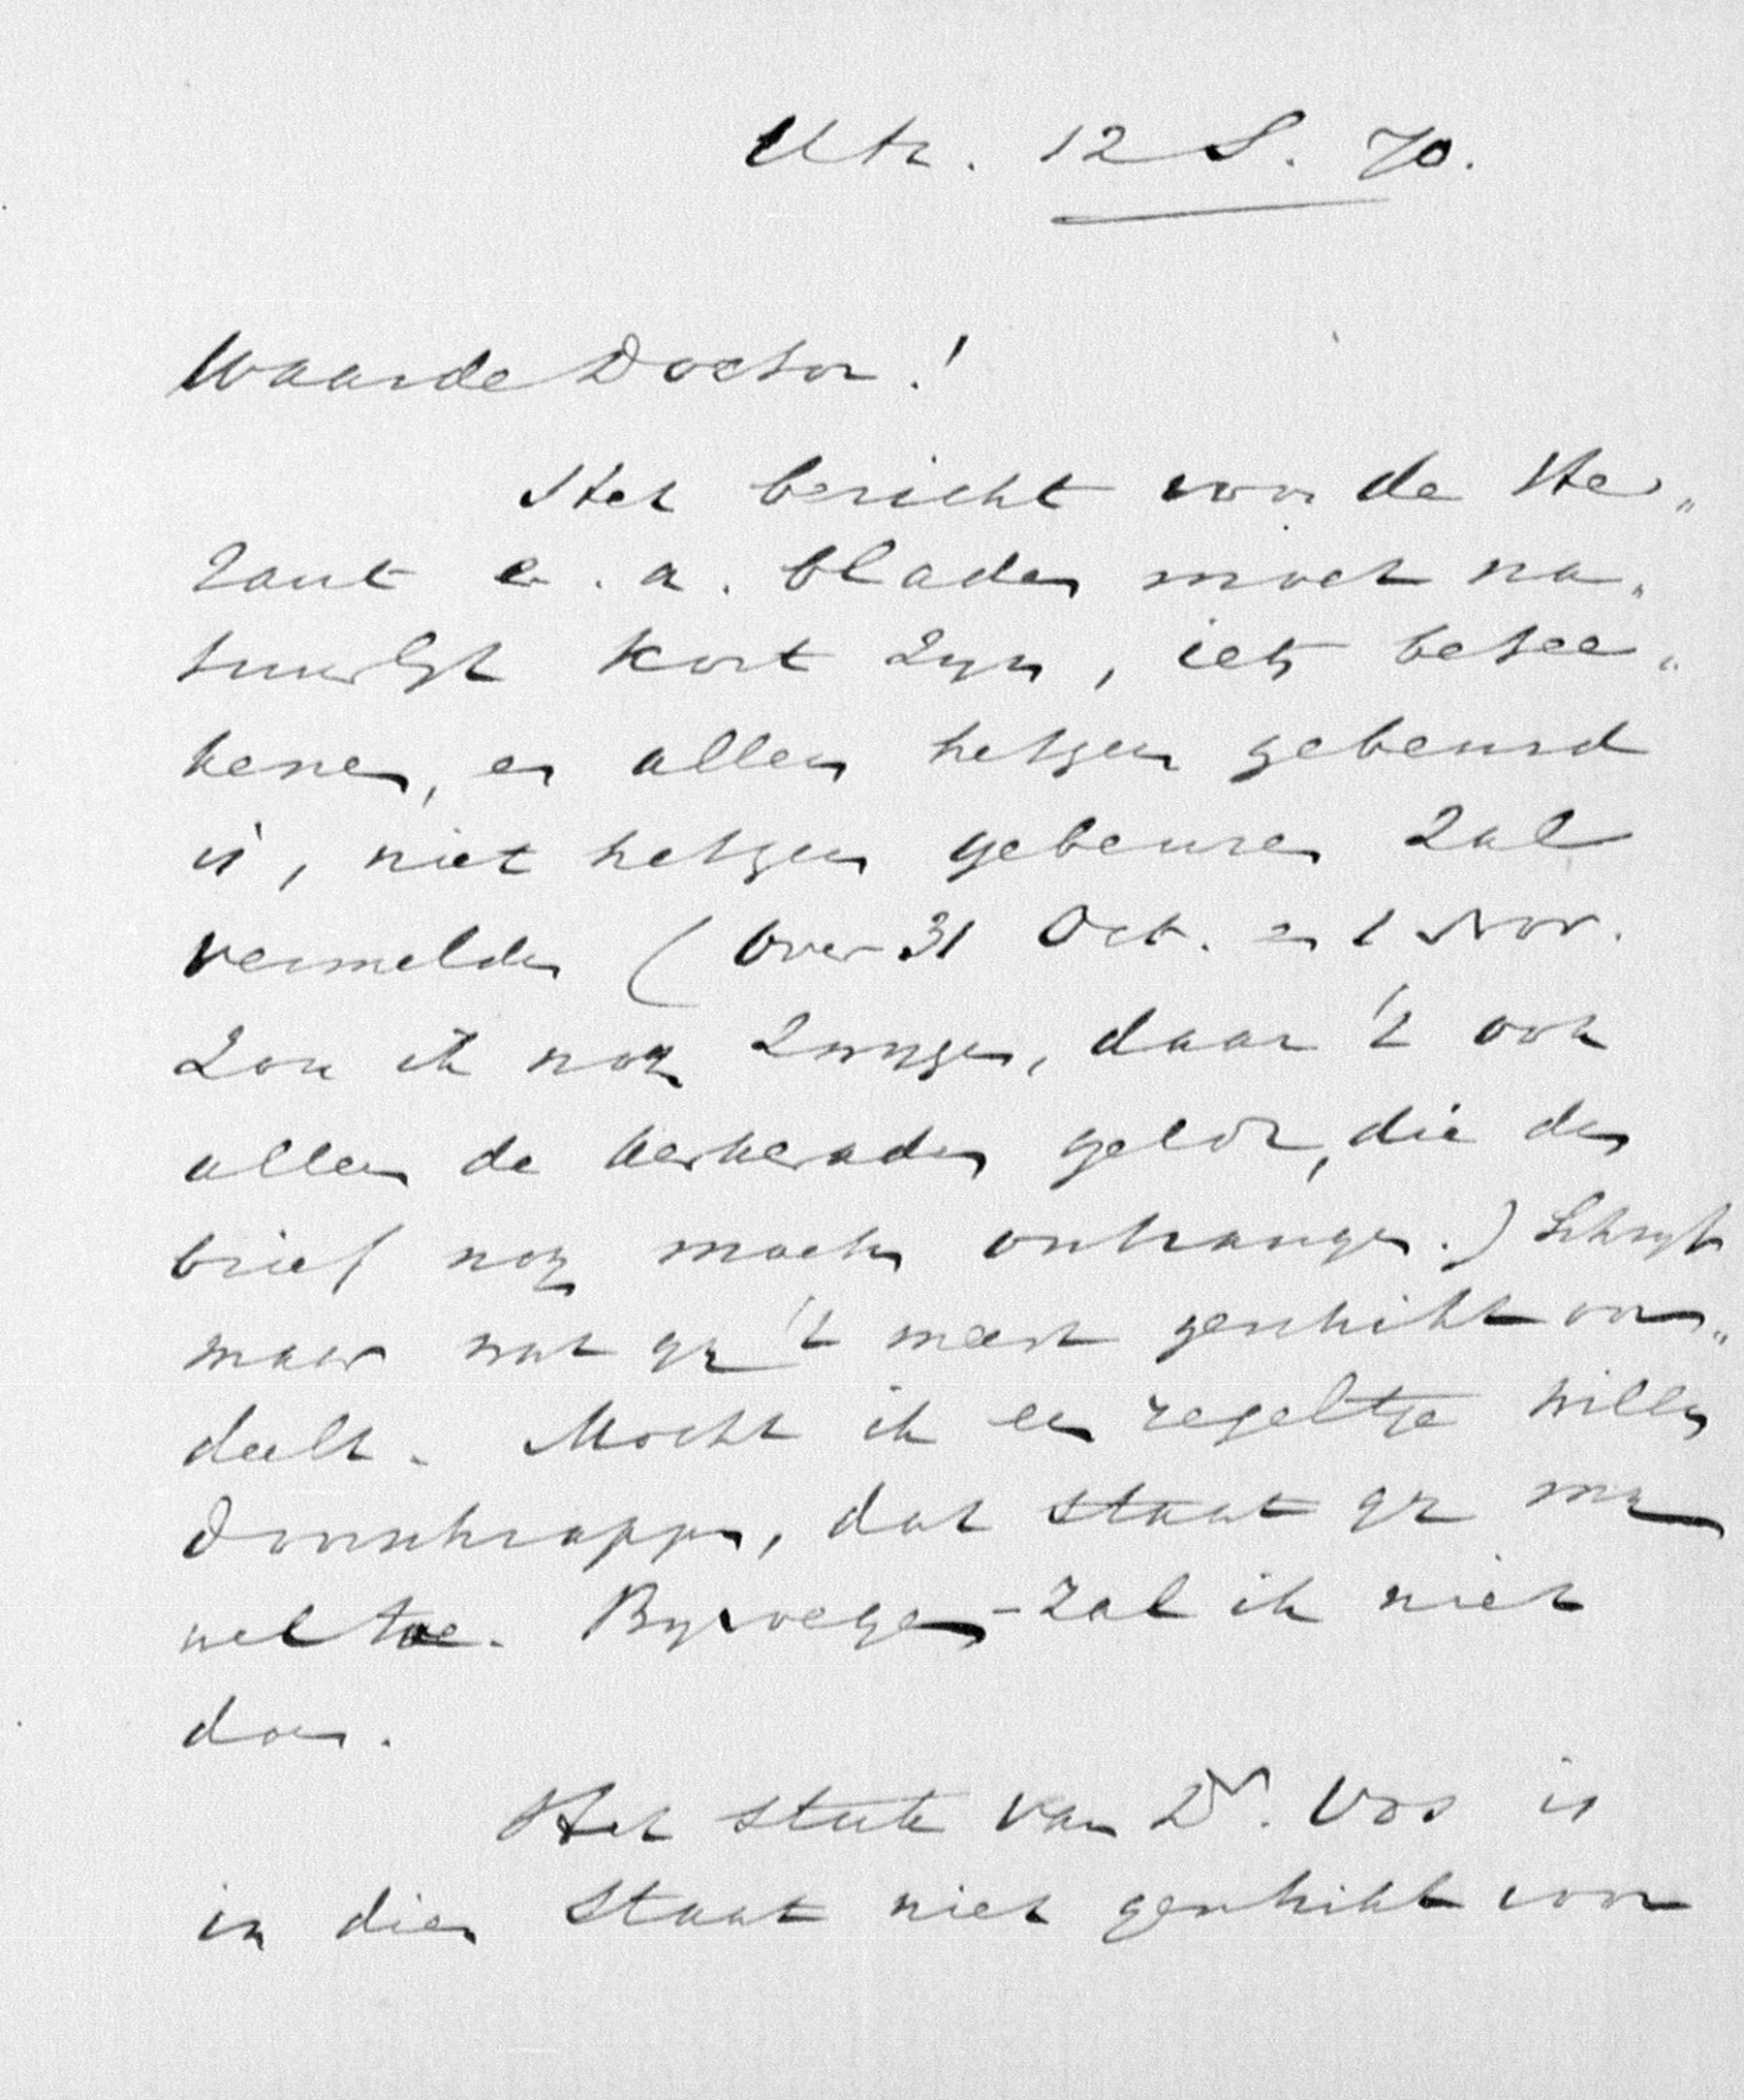 Utr. 12 S. 70.
Waarde Doctor!
Het bericht voor de He„
raut e. a. bladen moet na„
tuurlyk kort zyn, iets betee„
kenen, en alleen hetgeen gebeurd
is, niet hetgeen gebeuren zal
vermelden (Over 31 Oct. en 1 Nov.
zou ik nog zwygen, daar 't ook
alleen de kerkeraden geldt, die den
brief nog moeten ontvangen.) Schryf
maar wat gy 't meest geschikt oor„
deelt. Mocht ik een regeltje willen
doorschrappen, dat staat gy my
wel toe. Byvoegen zal ik niet
doen.
Het stuk van Dr. Vos is
in dien staat niet geschikt voor